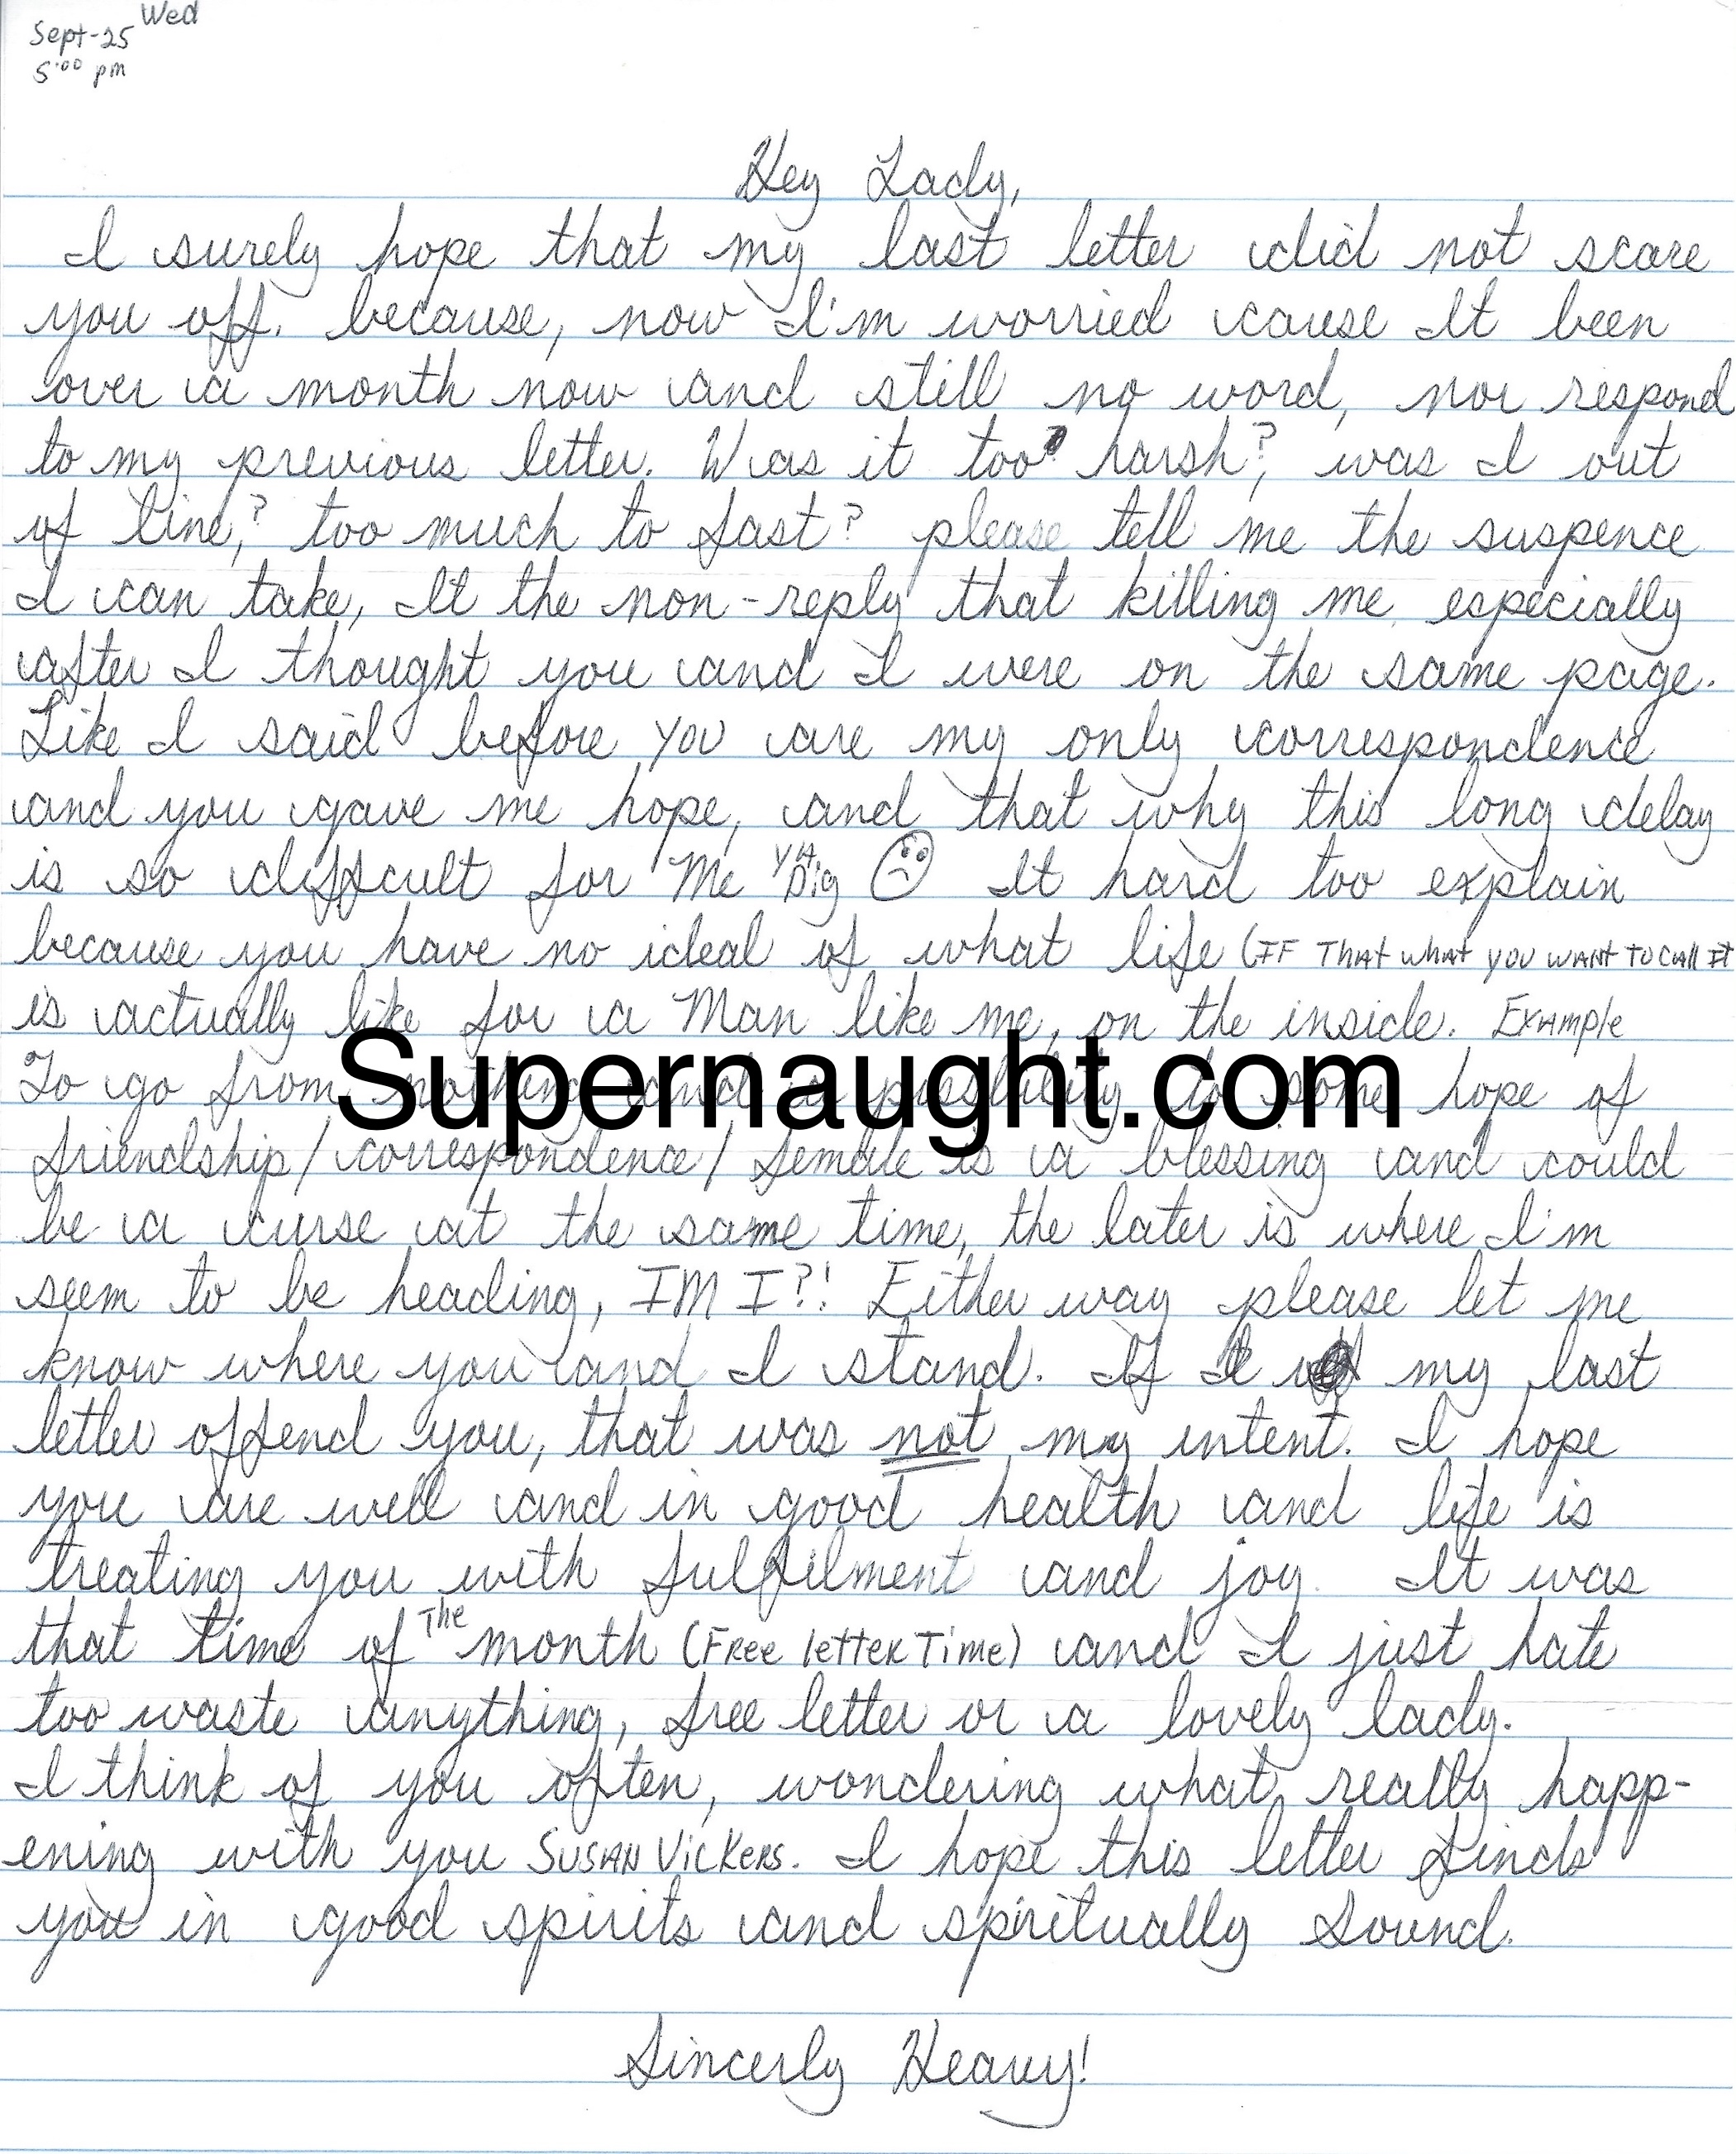 Wed
Sept-25
5:00 pm
Hey Lady,
I surely hope that my last letter did not scare
you off. because, now I'm worried cause It been
over a month now and still no word, nor respond
to my previous letter. Was it too harsh?, was I out
of line,? too much to fast? please tell me the suspence
I can take, It the non-reply that killing me especially
after I thought you and I were on the same page.
Like I said before YOU are my only correspondence
and you gave me hope, and that why this long delay
is so diffcult for Me YA Dig It hard too explain
because you have no ideal of what life (IF THAT WHAT YOU WANT TO CALL IT
is actually like for a Man like me, on the inside. EXAMPLE
To go from nothing and to some hope of
friendship/correspondence/female is a blessing and could
be a curse at the same time, the later is where I'm
seem to be heading, IM I?! Either way please let me
know where you and I stand. If my last
letter offend you, that was not my intent. I hope
you are well and in good health and life is
treating you with fulfilment and joy. It was
that time of The month (FREE letter Time) and I just hate
too waste anything, free letter or a lovely lady.
I think of you often, wondering what really happ-
ening with you SUSAN VICKERS. I hope this letter finds
you in good spirits and spiritually sound.
Sincerly Heavy!
Supernaught.com